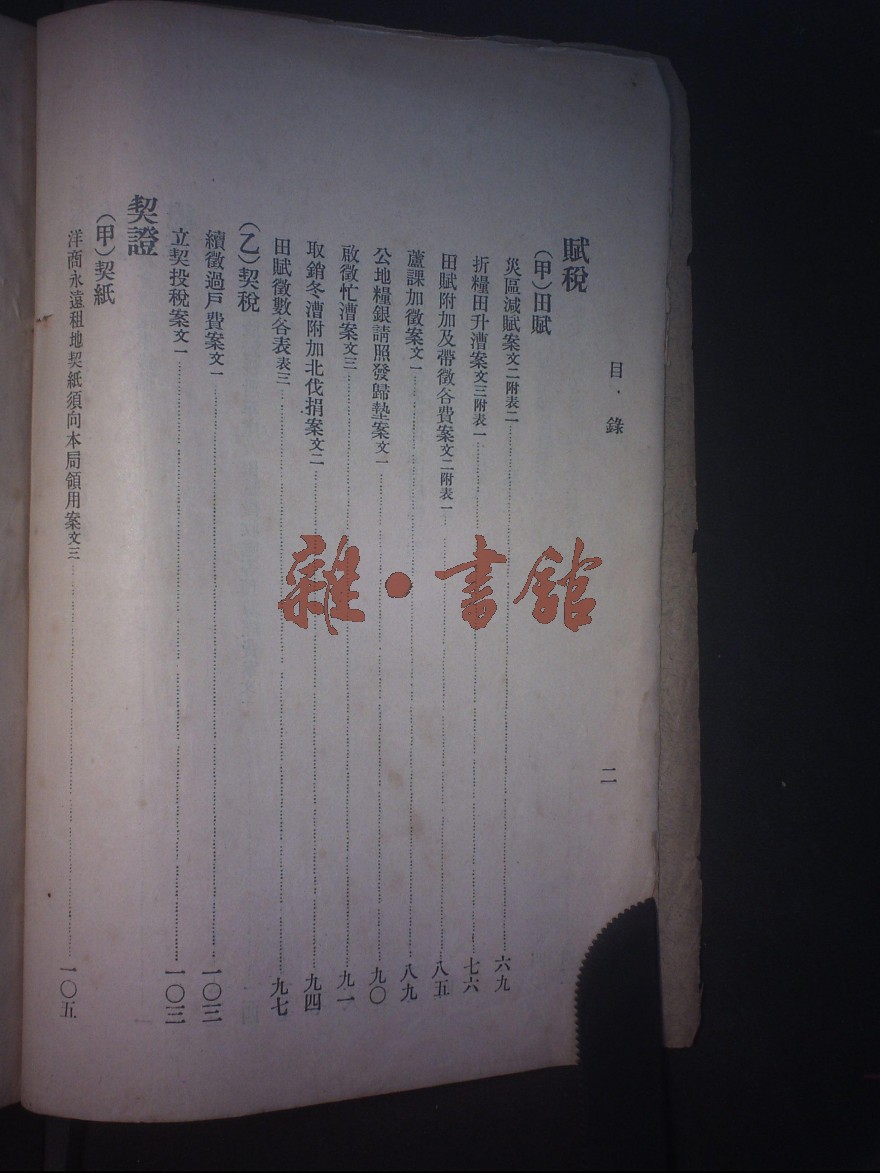 目錄
二
賦稅
(甲)田賦
災區減賦案文二附表二……六九
折糧田升漕案文三附表一……七六
田賦附加及帶徵各費案文二附表一……八五
蘆課加徵案文一……八九
公地糧銀請照發歸墊案文一……九〇
啟徵忙漕案文三……九一
取銷冬漕附加北伐捐案文二……九四
田賦徵數各表表三……九七
(乙)契稅
續徵過戶費案文一……一〇三
立契投稅案文一……一〇三
契證
(甲)契紙
洋商永遠租地契紙須向本局領用案文三……一〇五
雜·書館